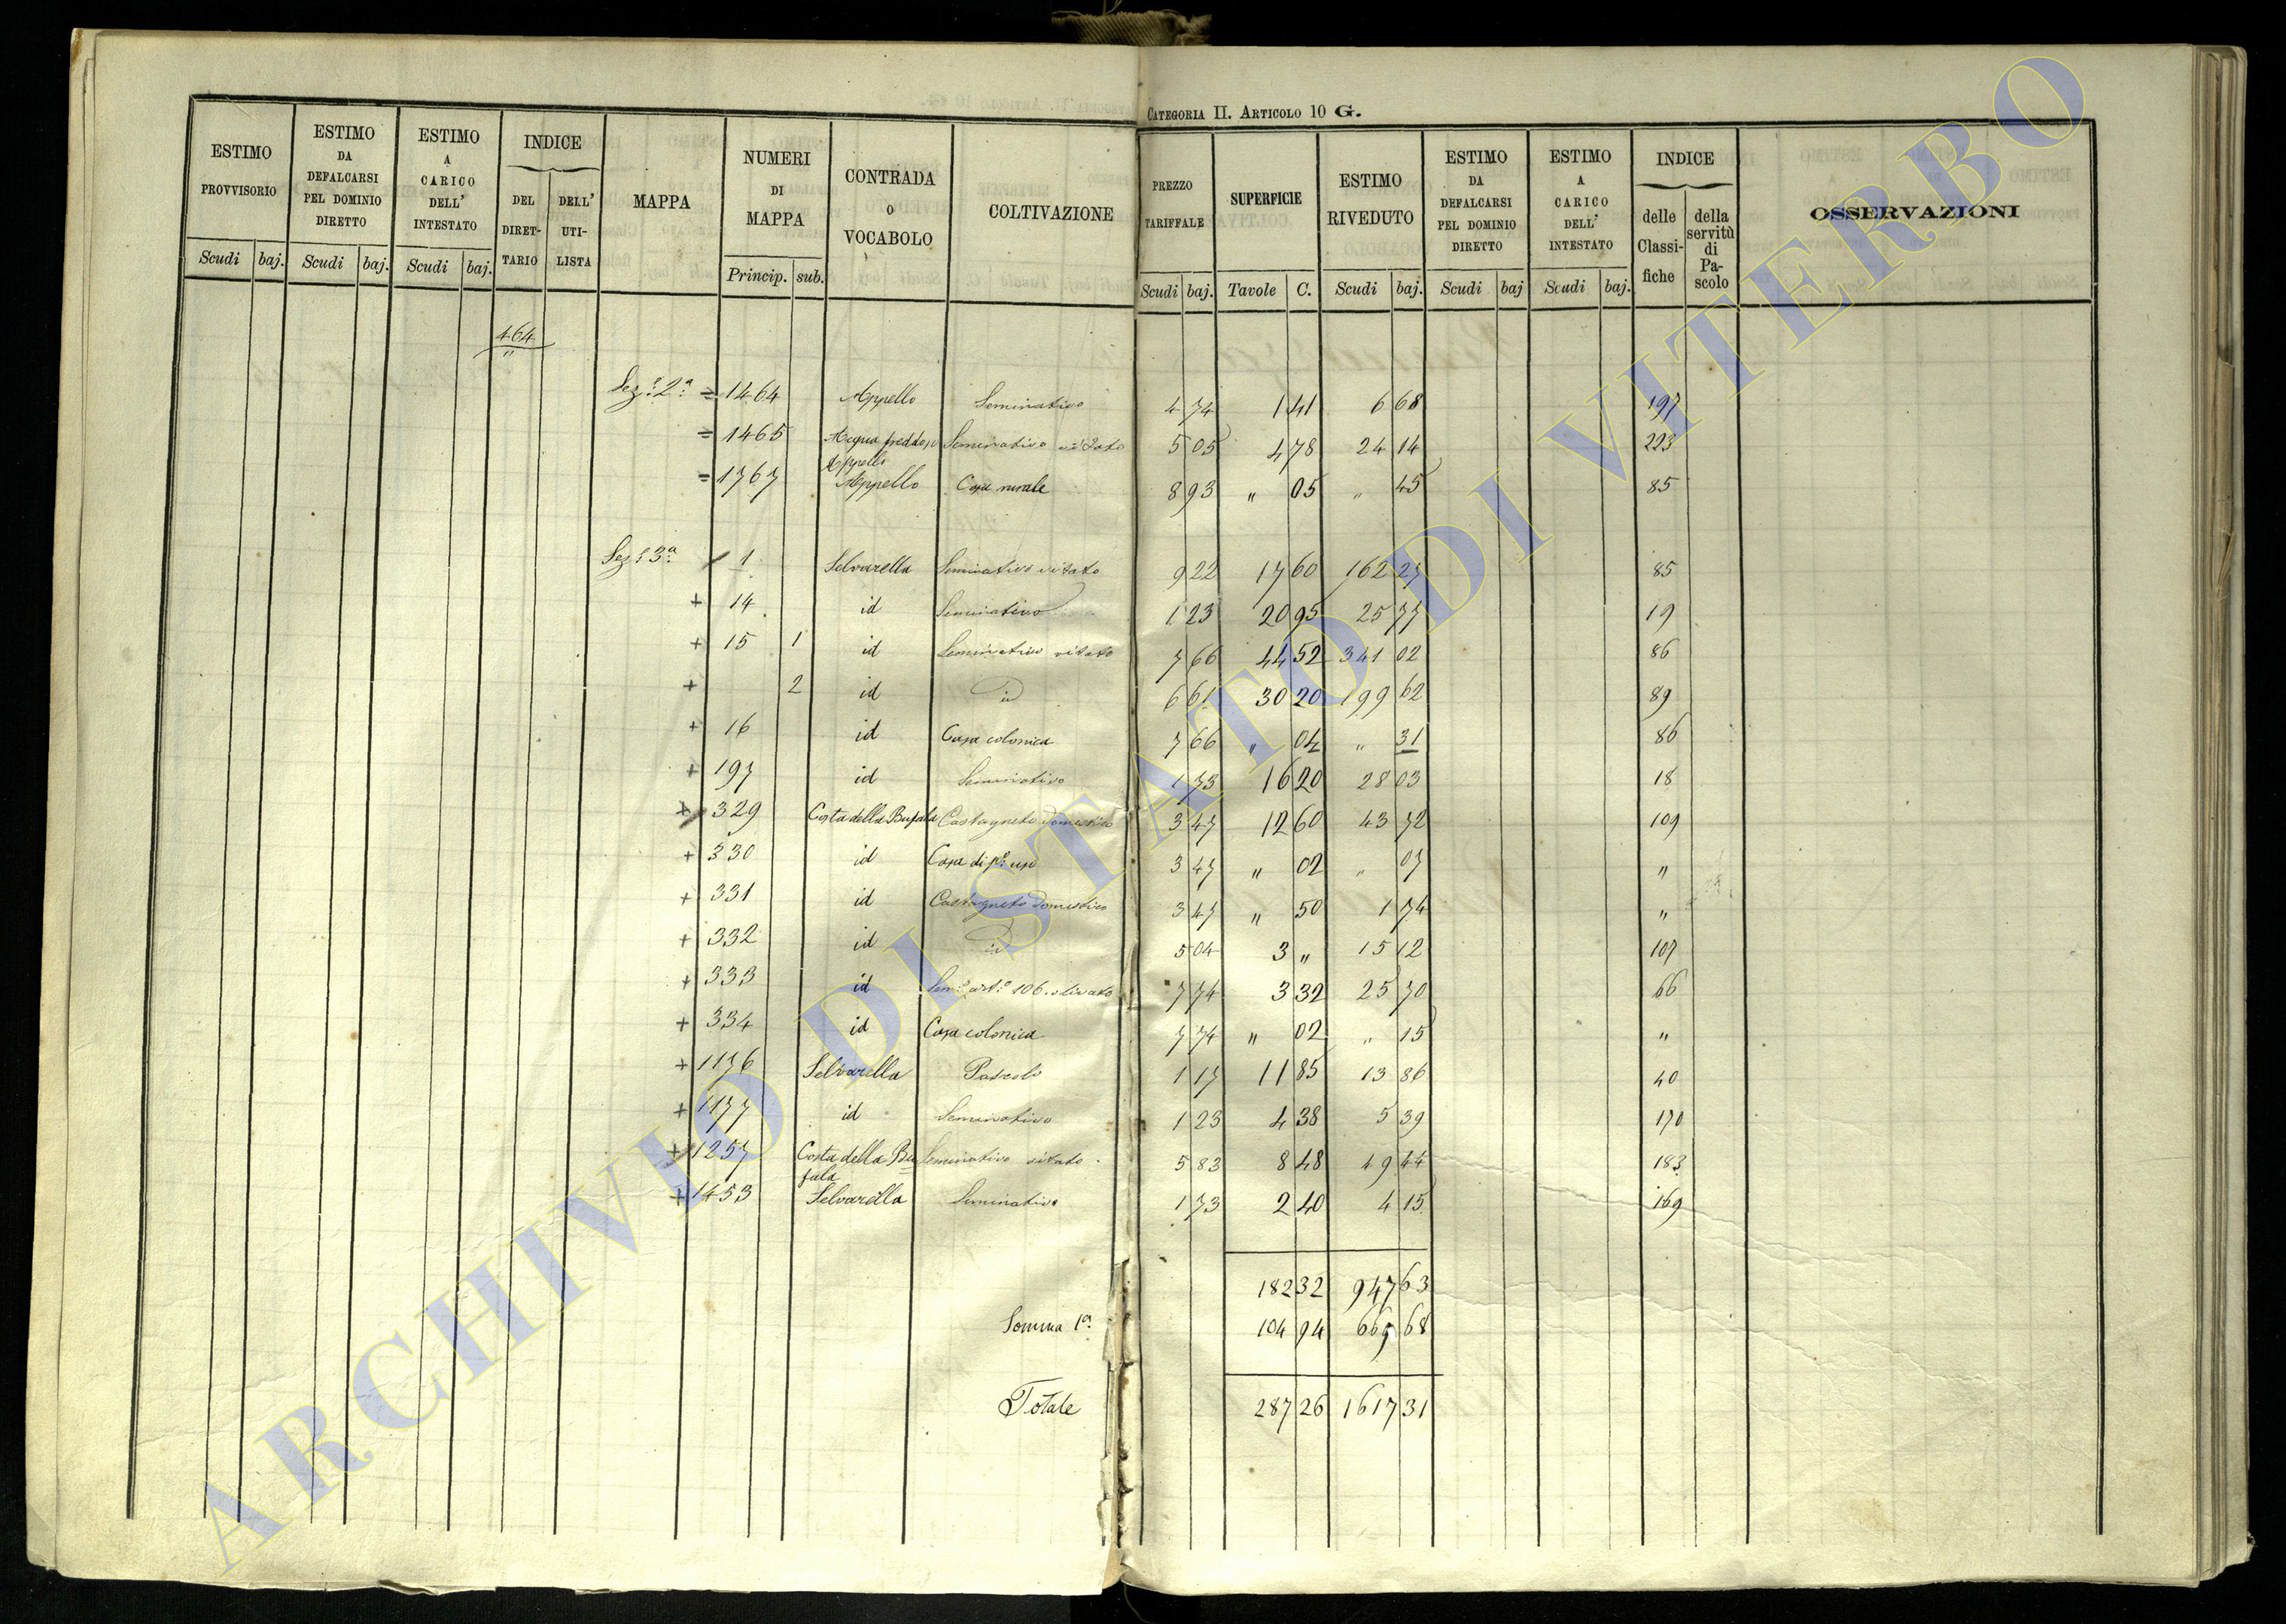 CATEGORIA II. ARTICOLO 10 G.
ESTIMO PROVVISORIO Scudi baj. | ESTIMO DA DEFALCARSI PEL DOMINIO DIRETTO Scudi baj. | ESTIMO A CARICO DELL' INTESTATO Scudi baj. | INDICE DEL DIRETTARIO DELL' UTILISTA | MAPPA | NUMERI DI MAPPA Princip. sub. | CONTRADA O VOCABOLO | COLTIVAZIONE | PREZZO TARIFFALE Scudi baj. | SUPERFICIE Tavole C. | ESTIMO RIVEDUTO Scudi baj. | ESTIMO DA DEFALCARSI PEL DOMINIO DIRETTO Scudi baj | ESTIMO A CARICO DELL' INTESTATO Scudi baj. | INDICE delle Classifiche della servitù di Pascolo | OSSERVAZIONI
464
"
Sez.e 2a = 1464 Appello Seminativo 4 74 1 41 6 68 197
= 1465 Acqua fredda, o Appello Seminativo vitato 5 05 4 78 24 14 223
= 1767 Appello Casa rurale 8 93 " 05 " 45 85
Sez.e 3a 1 Selvarella Seminativo vitato 9 22 17 60 162 27 85
+ 14 id Seminativo 1 23 20 95 25 77 19
+ 15 1 id Seminativo vitato 7 66 44 52 341 02 86
+ 2 id id 6 61 30 20 199 62 89
+ 16 id Casa colonica 7 66 " 04 " 31 86
+ 197 id Seminativo 1 73 16 20 28 03 18
+ 329 Costa della Bufala Castagneto domestico 3 47 12 60 43 72 109
+ 330 id Casa di p.o uso 3 47 " 02 " 07 "
+ 331 id Castagneto domestico 3 47 " 50 1 74 "
+ 332 id id 5 04 3 " 15 12 107
+ 333 id Sem.o art.o 106 olivato 7 74 3 32 25 70 66
+ 334 id Casa colonica 7 74 " 02 " 15 "
+ 1176 Selvarella Pascolo 1 17 11 85 13 86 40
+ 1177 id Seminativo 1 23 4 38 5 39 170
+ 1257 Costa della Bufala Seminativo vitato 5 83 8 48 49 44 183
+ 1453 Selvarella Seminativo 1 73 2 40 4 15 169
182 32 947 63
Somma 1a 104 94 669 68
Totale 287 26 1617 31
ARCHIVIO DI STATO DI VITERBO